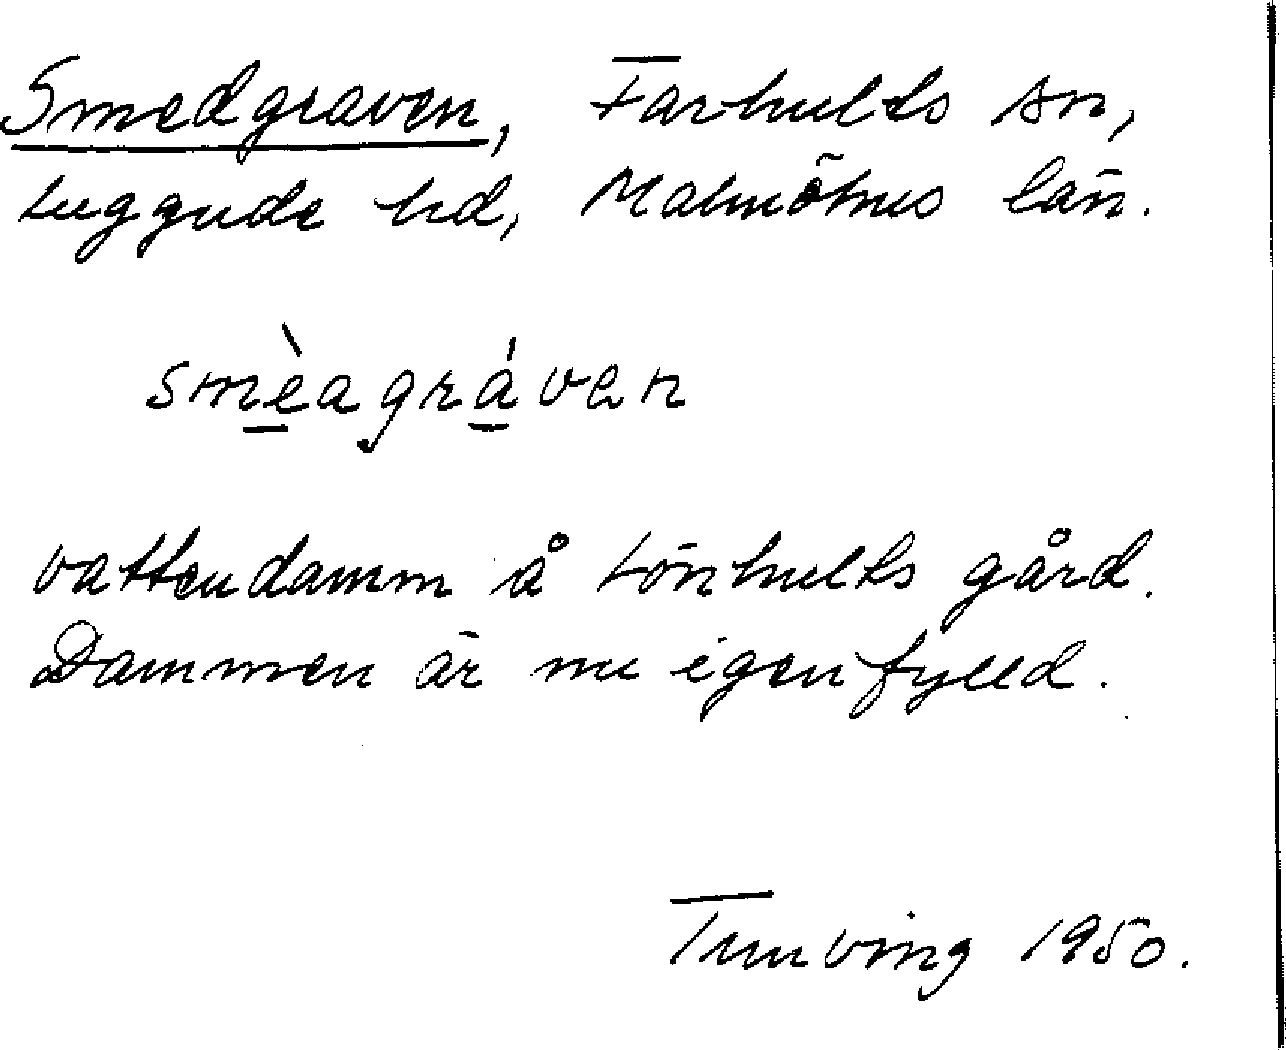 Smedgraven, Farhults sn,
Luggude hd, Malmöhus län.
smèagráven
vattendamm å Lönhults gård.
Dammen är nu igenfylld.
Tunving 1950.